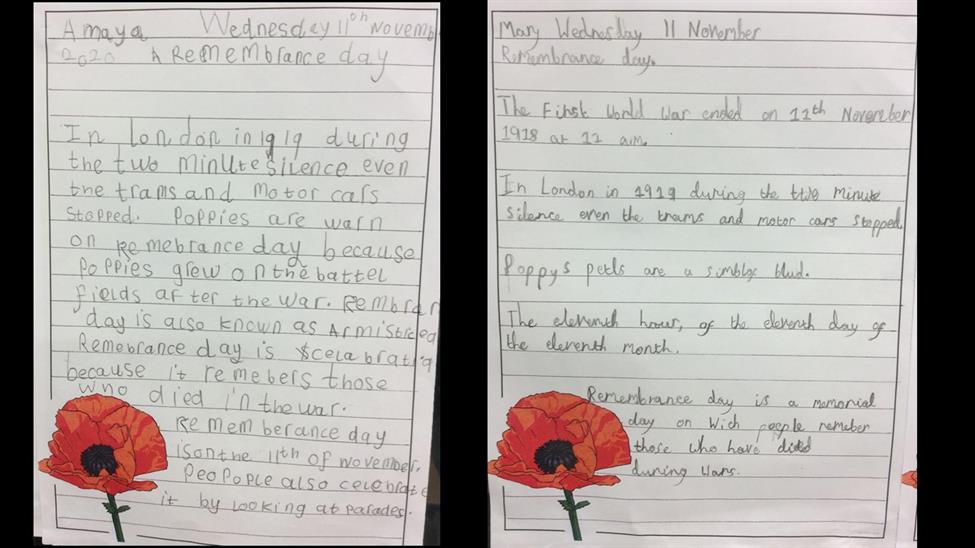 Amaya Wednesday 11th Novemb
2020 Remembrance day
In London in 1919 during
the two minute silence even
the trams and motor cars
stopped. Poppies are warn
on Remebrance day because
Poppies grew on the battel
fields after the war. Rembran
day is also known as Armisticeda
Remebrance day is celabratid
because it remebers those
who died in the war.
Rememberance day
is on the 11th of November.
Peopople also celebrate
it by looking at parades.
Mary Wednesday 11 November
Remembrance day.
The First World War ended on 11th November
1918 at 11 a.m.
In London in 1919 during the two minute
silence even the trams and motor cars stopped.
Poppys petls are a simblx blud.
The eleventh hour, of the eleventh day of
the eleventh month.
Remembrance day is a memorial
day on wich people remeber
those who have died
during wars.